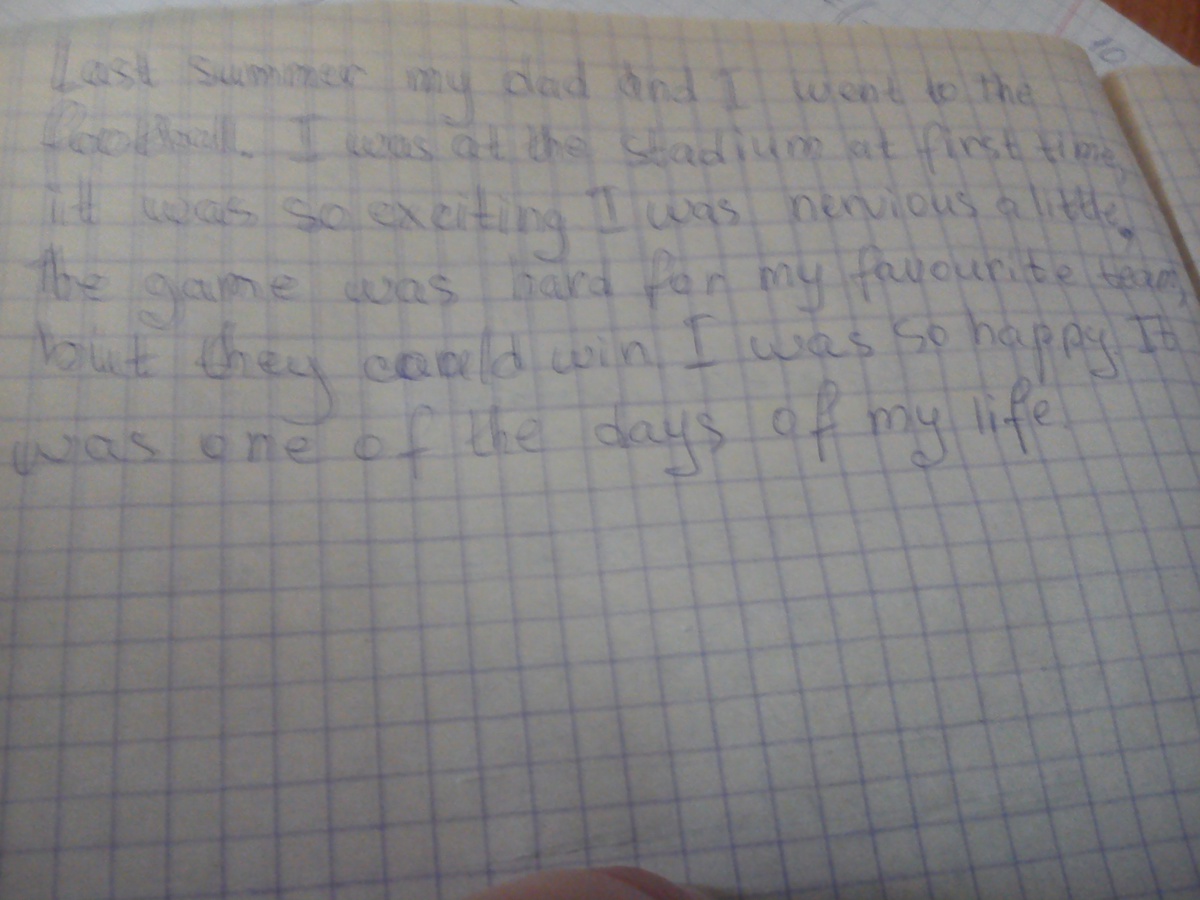 Last summer my dad and I went to the
football. I was at the stadium at first time,
it was so exciting I was nervious a little.
The game was hard for my favourite team,
but they could win. I was so happy. It
was one of the days of my life.
10